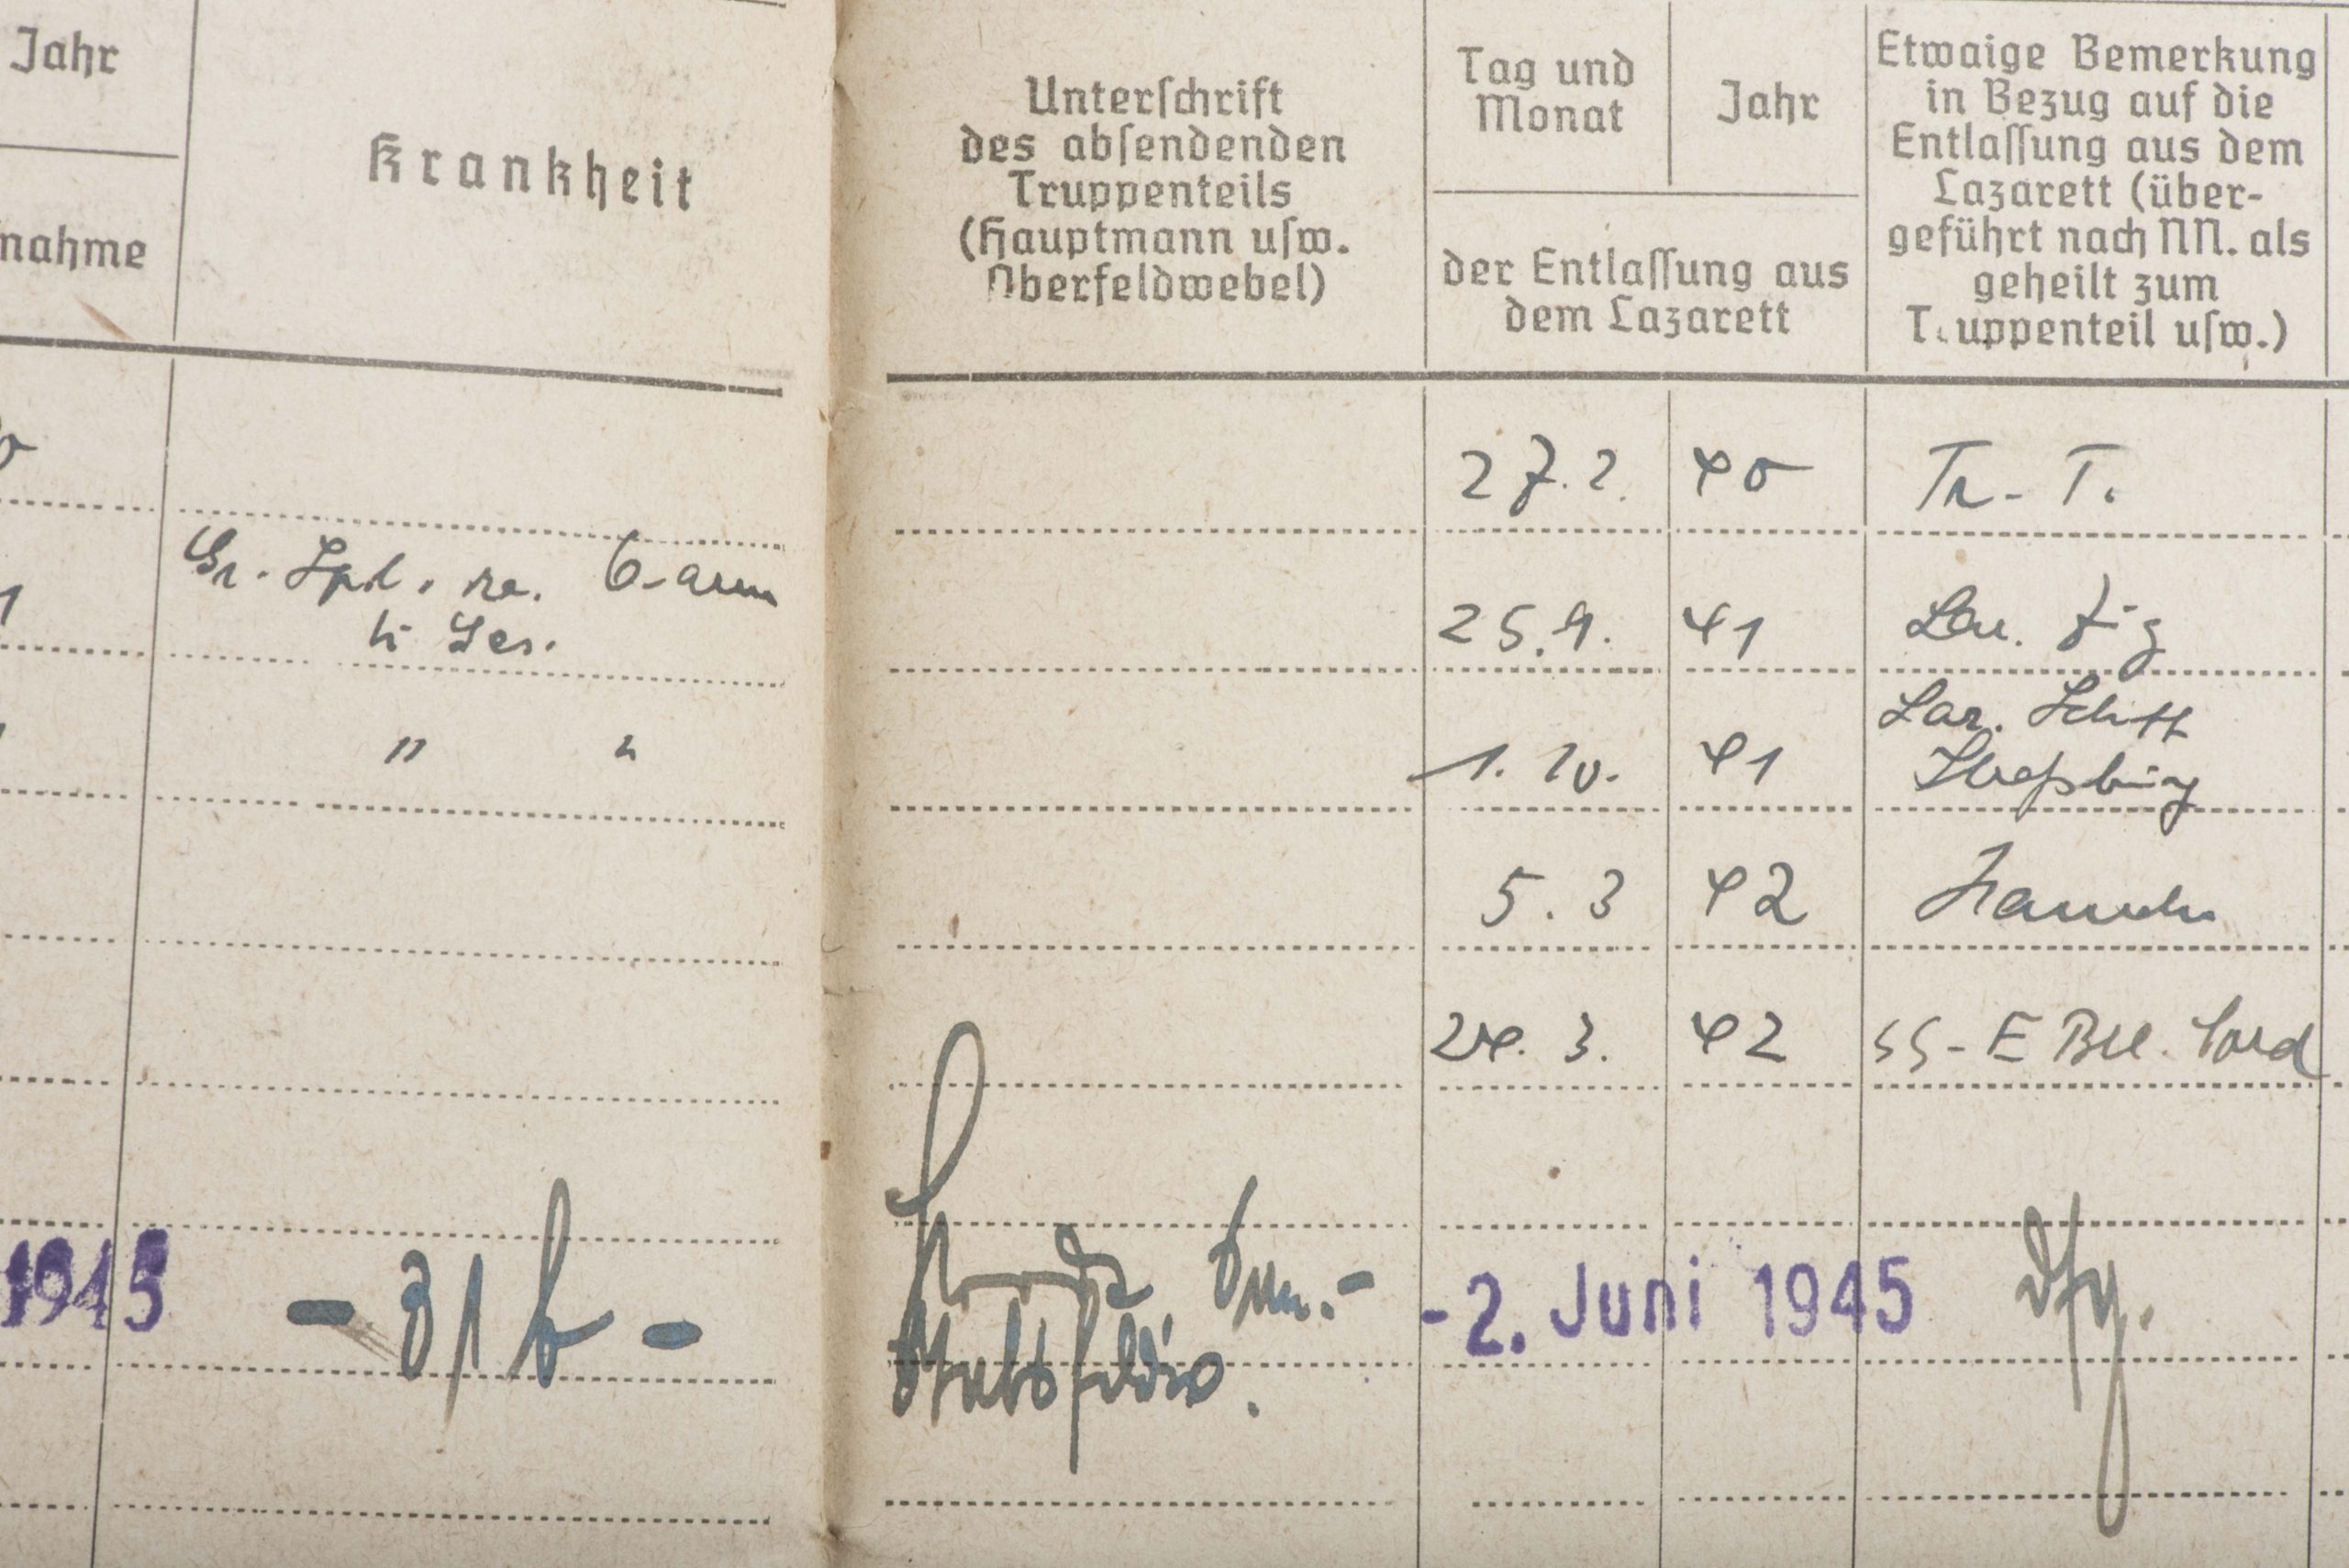 Jahr
nahme
Krankheit
Unterſchrift
des abſendenden
Truppenteils
(Hauptmann uſw.
Oberfeldwebel)
Tag und
Monat
Jahr
der Entlaſſung aus
dem Lazarett
Etwaige Bemerkung
in Bezug auf die
Entlaſſung aus dem
Lazarett (über-
geführt nach NN. als
geheilt zum
Truppenteil uſw.)
27. 2. 40 Tr. T.
Gr. Spl. re. O-arm
li Ges.
25. 9. 41 Laz.
" "
1. 10. 41 Laz. Schiff
5. 3 42
24. 3. 42 SS-E Btl. Nord
1945 - 31 b - -2. Juni 1945 dfg.
Stabsfeldw.